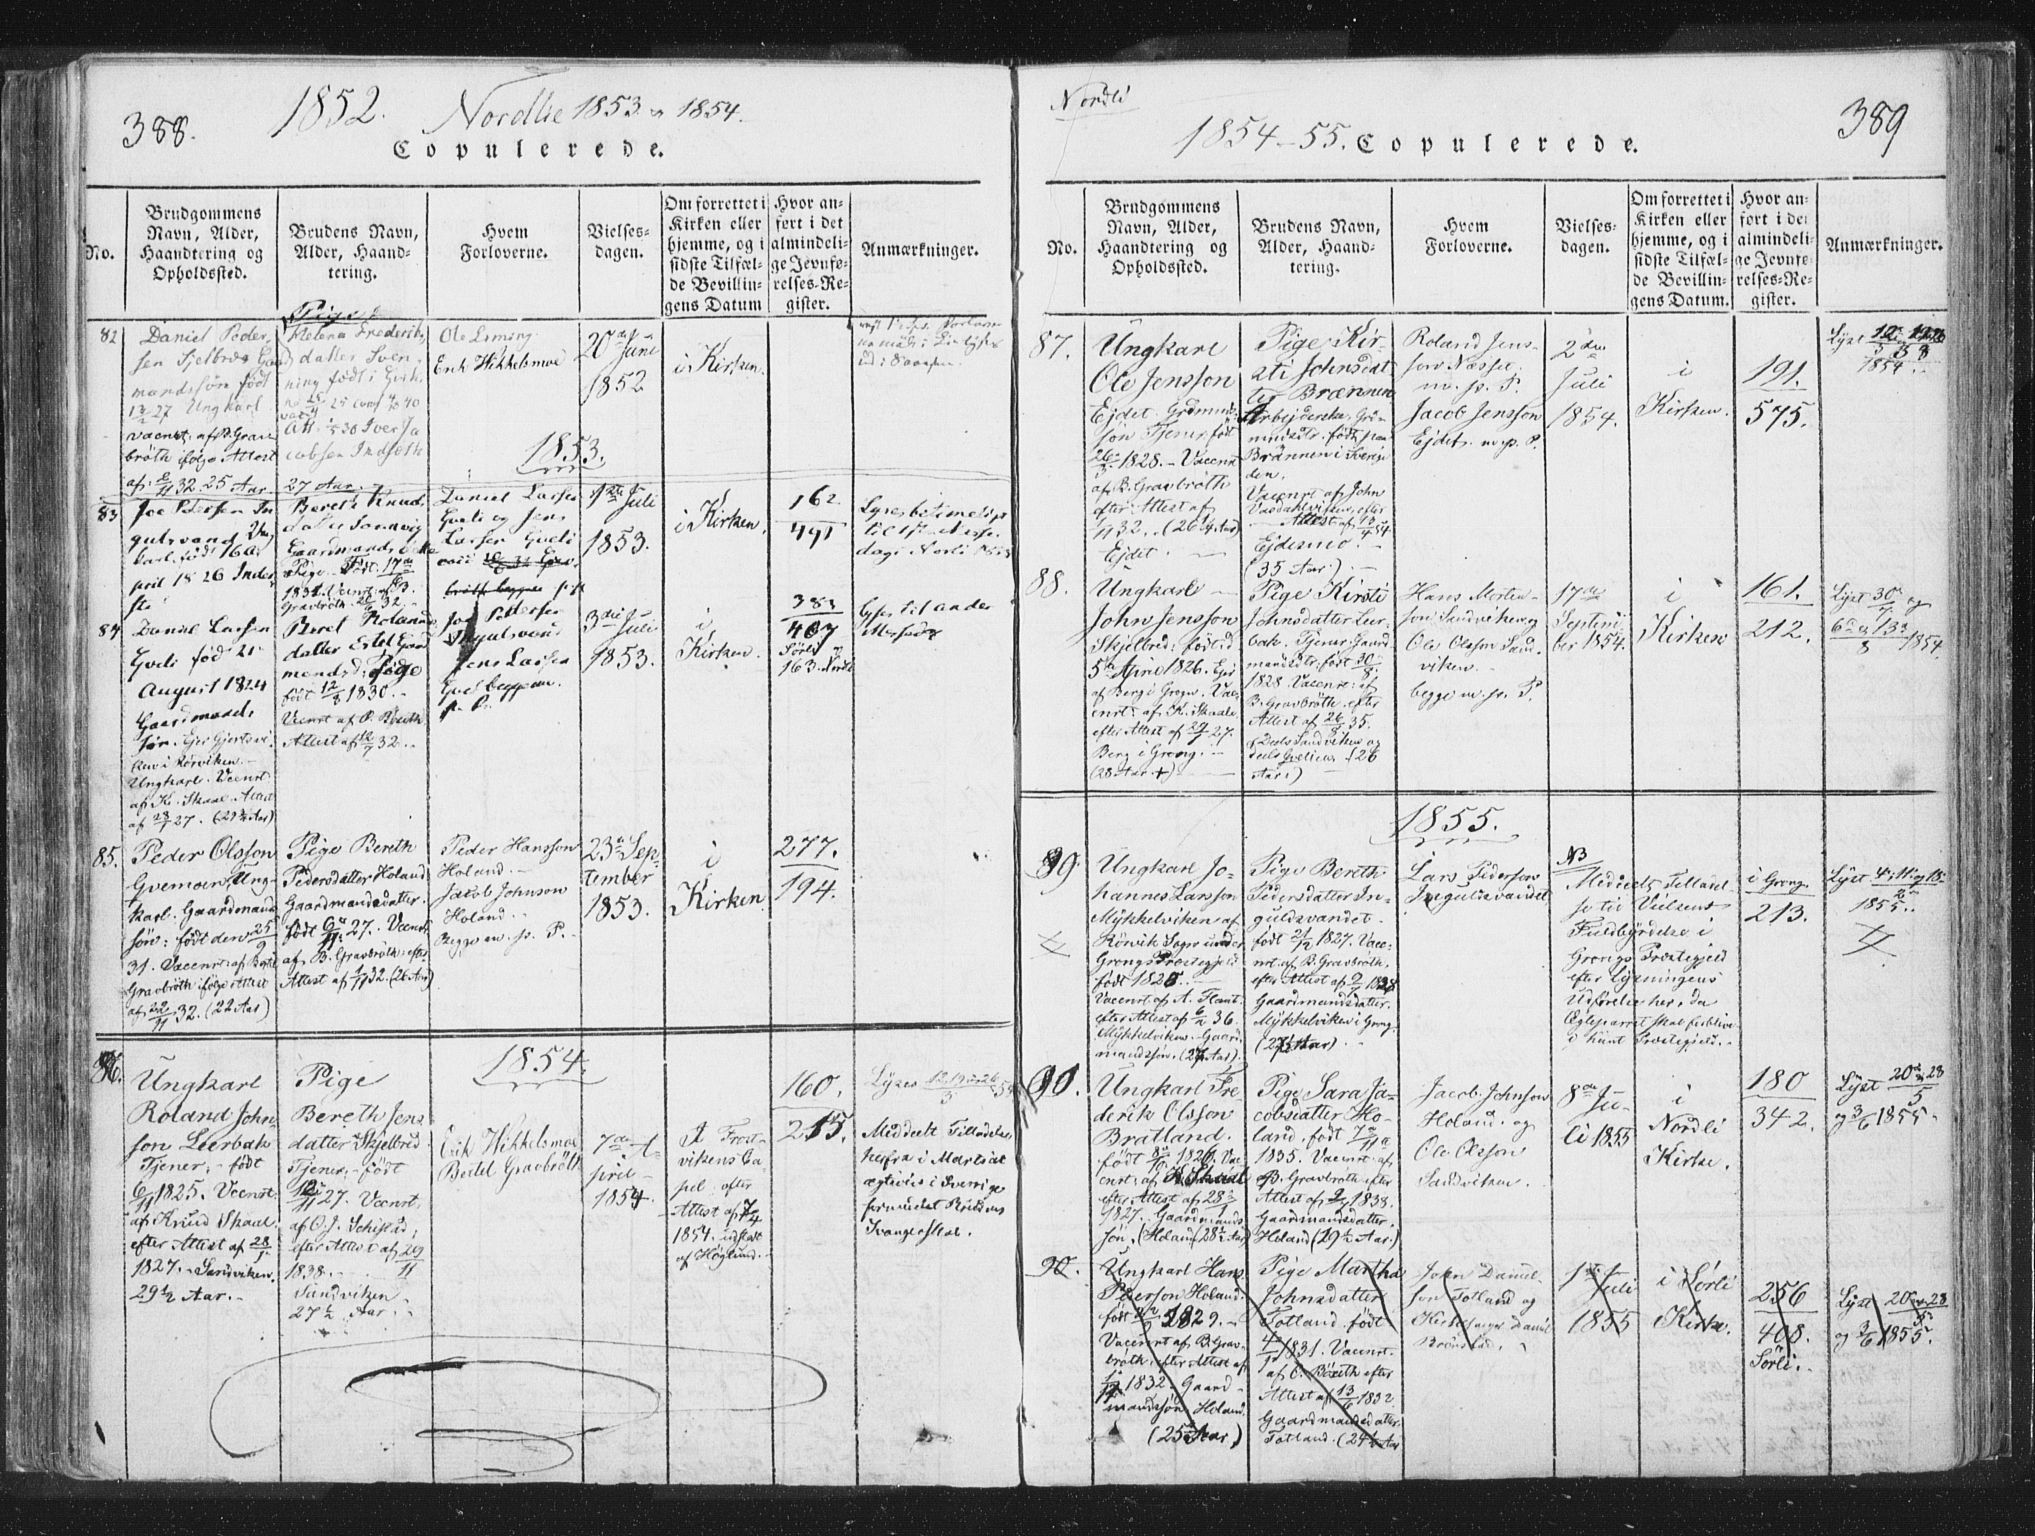 388.
1852. Nordlie 1853 & 1854.
Copulerede.
No.
Brudgommens
Navn, Alder,
Haandtering og
Opholdssted.
Brudens Navn,
Alder, Haand-
tering.
Hvem
Forloverne.
Vielses-
dagen.
Om forrettet i
Kirken eller
hjemme, og i
sidste Tilfæl-
de Bevillin-
gens Datum
Hvor an-
ført i det
almindeli-
ge Jevnfø-
relses-Re-
gister.
Anmærkninger.
82
Daniel Peder
sen Sjelbræd
mandssøn født
27 Ungkarl
vaccnt. af B. Grav
brøth ifølge Attest
af 32. 25 Aar.
Pige
Helena Frederiks
datter Sven
ning født i
Iver Ja
cobsen
27 Aar.
Ole
Erik Hikkelsmoe
20de Juni
1852
i Kirken.
1853.
83
Joe Pedersen In
gulsvand Ung
karl født 16 A
pril 1826
Bereth Knuds
datter Sannvig
Gaardmands
Pige Født 17de
1832. Vacnt. af
Gravbrøth 32.
Daniel Larsen
Gveli og Jens
Larsen Gveli
1ste Juli
1853.
i Kirken.
162
491
Lysesbetimeligt
til
84
Daniel Larsen
Gveli fød 21
August 1824
Gaardmands
søn. Ejer Gjertsvi
ken i Rørviken.
Ungkarl. Vacnt.
af K. Skaal Attest
af 28/1 27. (29 Aar)
Beret Roland
datter Estil Gaa
mandsd: Pige
født 12/8 1830.
Vacnt af O. Bøeth
Attest af 32.
Joe Pedersen
Ingulsvand
Jens Larsen
Gveli begge m.
p. P.
3die Juli
1853.
i
Kirken.
383
407
Sørli
163. Nordli
lyses til ander
Messe
85.
Peder Olsson
Gvemoen, Ung-
karl. Gaardmand
søn: født den 25/9
31. Vaccnt: af Bertil
Gravbrøth ifølge Attest
af 22/11 32. (22 Aar)
Pige Bereth
Pedersdatter Holand
Gaardmandsdatter.
født 6/11 27. Vaccnt
af B. Gravbrøth efter
Attest af 1/11 32 (26 Aar)
Peder Hansson
Holand.
Jacob Johnson
Holand.
Begge m. p. P.
23de Sep-
tember
1853.
i
Kirken.
277.
194.
1854.
86.
Ungkarl
Roland John
son Leerbak
Tjener, født
6/11 1825. Vccnt.
af Knud Skaal
efter Attest af 28/1
1827. Sandviken.
29½ Aar.
Pige
Bereth Jens
datter Skjelbred
Tjener, født
12/11 27. Vccnt.
af O. J. Schistad,
efter Attest af 29/11
1838.
Sandviken
27½ Aar.
Erik Hikkelsmoe
Bertil Gravbrøth
7de A-
pril
1854
I Frost-
vikens Ca
pel efter
Attest af 7/4
1854 udstæt
af Høglund.
160.
215.
Lyses 12, 19 og 26/3 54
Meddelt Tilladelse
herfra i
ægtevies i Sverrige
formedelst Brudens
Svangerskab.
Nordli
1854-55. Copulerede.
389
No.
Brudgommens
Navn, Alder,
Haandtering og
Opholdssted.
Brudens Navn,
Alder, Haand-
tering.
Hvem
Forloverne.
Vielses-
dagen.
Om forrettet i
Kirken eller
hjemme, og i
sidste Tilfæl-
de Bevillin-
gens Datum.
Hvor an-
ført i det
almindeli-
ge Jevnfø-
relses-Re-
gister.
Anmærkninger.
87.
Ungkarl
Ole Jensson
Ejdet. Grdmnds
søn Tjener født
26/3 1828. Vaccnt
af B. Gravbrøth
efter Attest af
1/11 32. (26¼ Aar)
Ejdet.
Pige Kir-
sti Johnsdat
ter Brænnen
Arbejderske, Grd-
mndsdtr. født paa
Brännen i Sverig
den.
Vaccnt af John
Vasdahlviken efter
Attest af 13/4 54
Ejdesmo.
(35 Aar)
Roland Jens-
son Næsset.
m. p. P.
Jacob Jensson
Ejdet. m. p. P.
2den
Juli
1854.
i
Kirken.
191.
575.
Lyst
1854.
88.
Ungkarl
John Jensson
Skjelbred: født d
5te April 1826. Ejer
af Berg i Grogn. Vac-
cnt: af K. Skaale
efter Attest af 29/1 27.
Berg i Grong.
(28 Aar +)
Pige Kirsti
Johnsdatter Leer-
bak. Tjener, Gaard
mandsdtr. født 30/8
1828. Vaccnt: af
B. Gravbröth efter
Attest af 26/8 35.
Deels Sandviken og
deels Gvelien (26
Aar.)
Hans Morten-
son Sandviken og
Ole Olsson Sand-
viken.
begge m. p. P.
17de
Septem-
ber 1854.
i
Kirken
161.
212.
Lyst 30/7 og
6te og 13de/8 1854.
1855.
89
Ungkarl Jo-
hannes Larsson
Mykkelviken af
Rörvik Sogn under
Grongs Præstegjeld
født 1826.
Vaccnt af A. Flent:
efter Attest af 6/2 36.
Mykkelviken. Gaard
mandssøn. (27 Aar)
Pige Bereth
Pedersdatter In-
guldsvandet.
født 21/12 1827. Vacc-
nt af B. Gravbrøth,
efter Attest af 2/7 1828
Gaardmandsdatter.
Mykkelviken i Grong.
(27½ Aar).
Lars Pederson
Inguldsvandet
NB
Meddelt Tilladel-
se til Vielsens
Fuldbyrdelse i
Grongs Præstegjeld
efter Lysningens
Udførelse her, da
Ægteparret skal forblive
i hiint Præstegjeld.
i Grong
213.
Lyst 4de, 11 og 18
2
1855.
90.
Ungkarl Fre
derik Olsson
Bratland.
født 1826. Vac
cnt: af K. Skaal
efter Attest af 28/1
1827. Gaardmands
søn, (Holand (28½ Aar)
Pige Sara Ja-
cobsdatter Ho-
land, født 7/11
1835. Vaccnt. af
B. Gravbrøth efter
Attest af 2/7 1838.
Gaardsmandsdatter.
Holand (19½ Aar.)
Jacob Johnson
Holand. og
Ole Olsson
Sandviken.
8de Ju-
li 1855
i
Nordli
Kirke.
180
342.
Lyst 20de og 28
5
og 3/6 1855.
90.
Ungkarl Hans
Pederson Holand.
født 1829.
Vaccnt af B. Grav-
brøth, efter Attest af
1832. Gaard-
mandssøn Holand.
(25 Aar.)
Pige Martha
Johnsdatter
Totland. født
1831. Vaccnt.
af O. Böeeth efter
Attest af 13/6 1832
Gaardmandsdatter.
Totland. (24 Aar
John Daniel-
son Totland og
Kirkesanger Daniel
Brönstad.
1ste Juli
1855
i Sørli
Kirke.
256
408.
Sörli.
Lyst 20 og 28/5
og 3/6 1855.